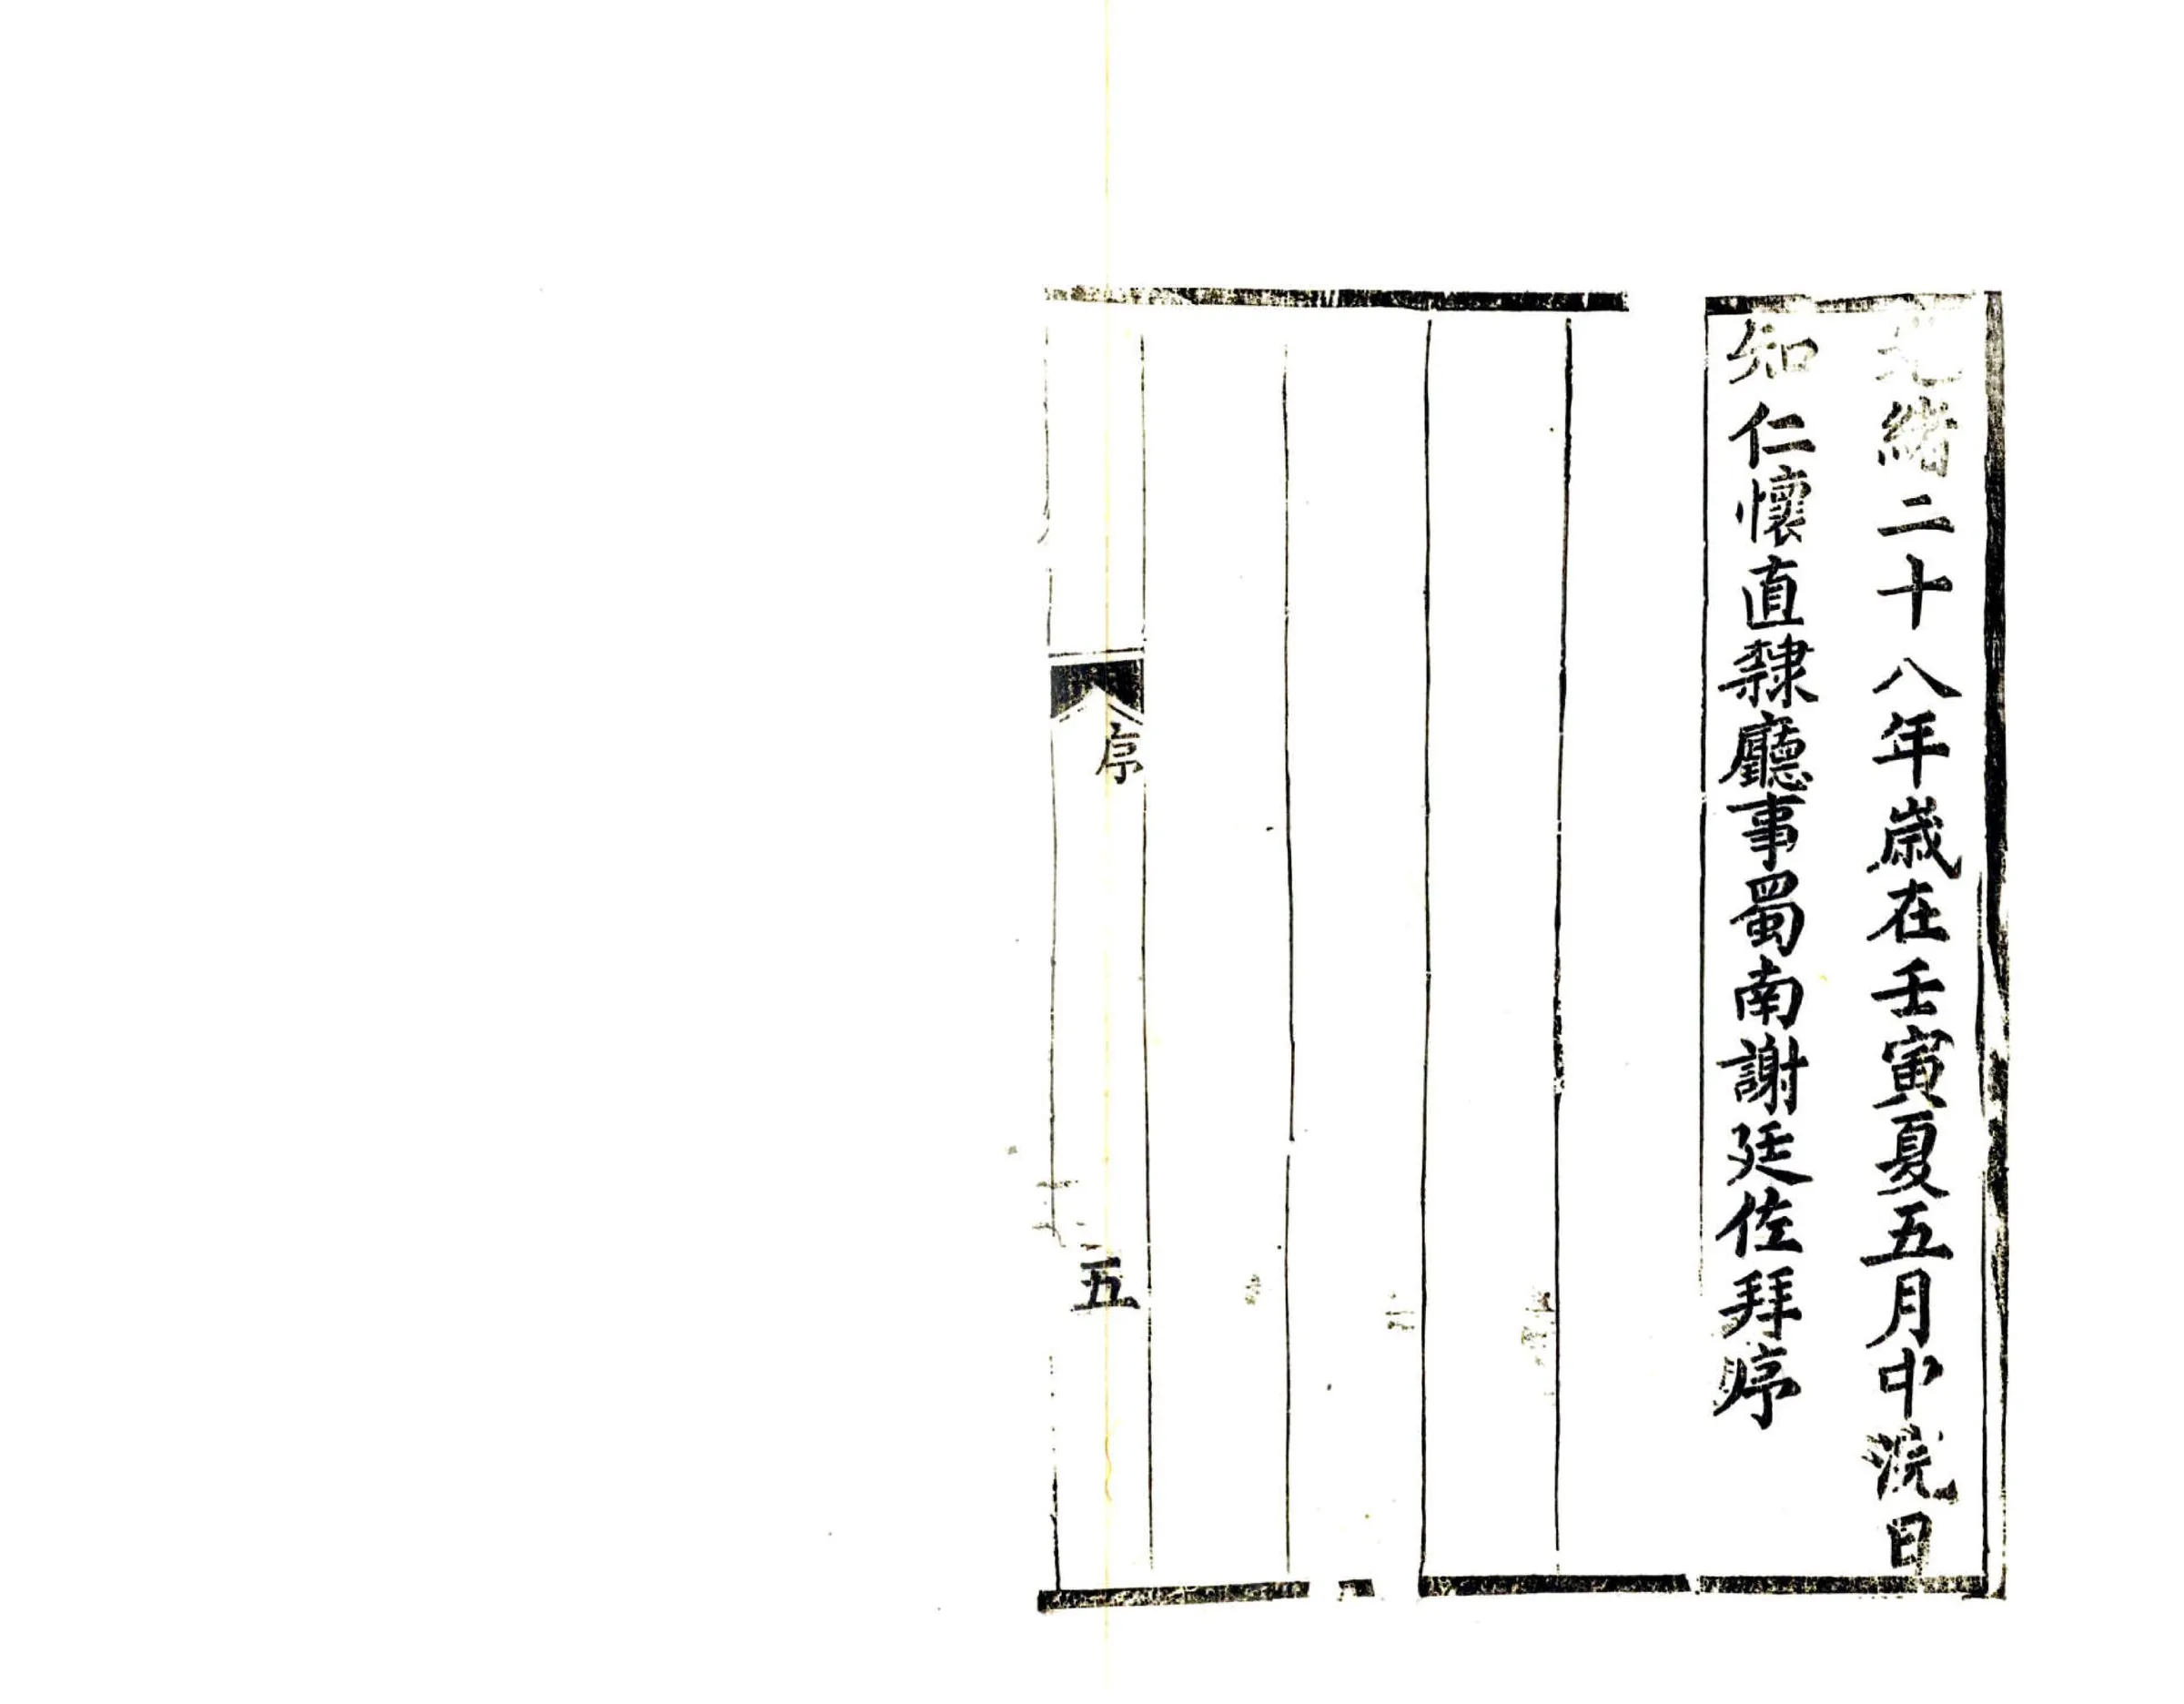 光緒二十八年歲在壬寅夏五月中浣日
知仁懷直隸廳事蜀南謝廷佐拜序
序
五